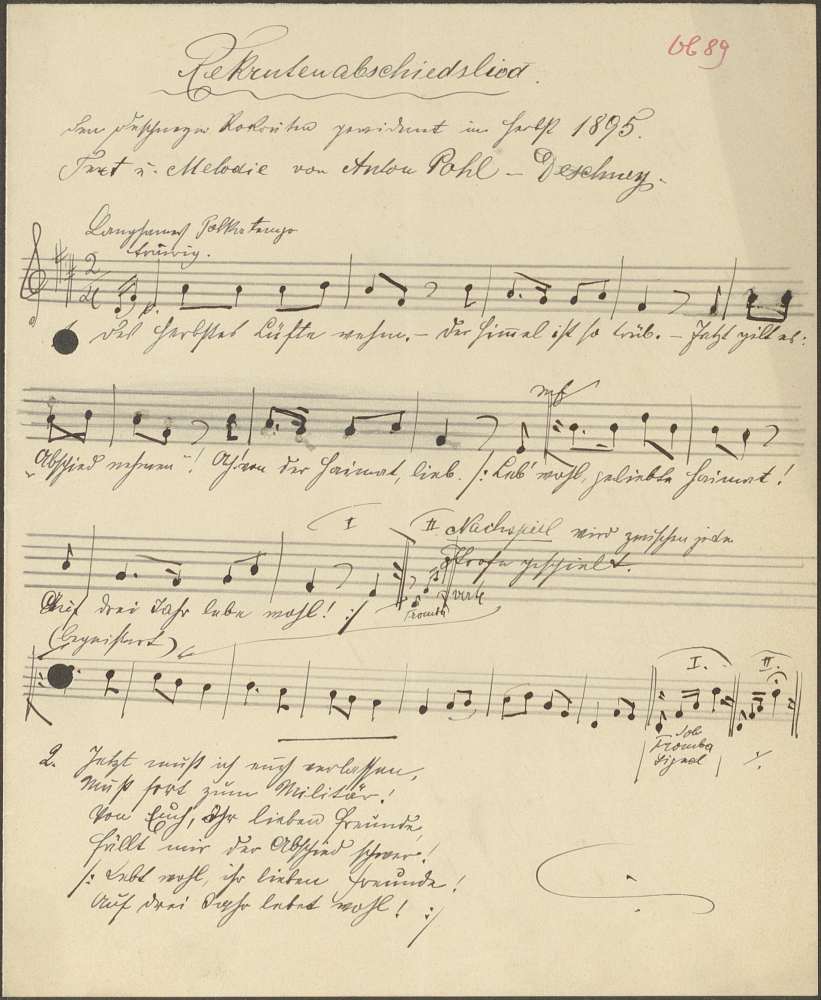 bb 89
Rekrutenabschiedslied.
den Deschneyer Rekruten gewidmet im Herbst 1895.
Text u. Melodie von Anton Pohl – Deschney.
Langsames Polkatempo
traurig.
2/4 p.
Des Herbstes Lüfte wehen. – Der Himmel ist so trüb. – Jetzt gilt es:
mf
"Abschied nehmen"! Ach! von der Heimat, lieb. /: Leb' wohl, geliebte Heimat!
I II. Nachspiel wird zwischen jede
Strofe gespielt.
Auf drei Jahr lebe wohl! :/
Tromba
(begeistert)
I. II.
Solo
Tromba
Signal
2. Jetzt muß ich euch verlassen,
Muß fort zum Militär!
Von Euch, Ihr lieben Freunde,
fällt mir der Abschied schwer!
/: Lebt wohl, ihr lieben Freunde!
Auf drei Jahr lebet wohl! :/